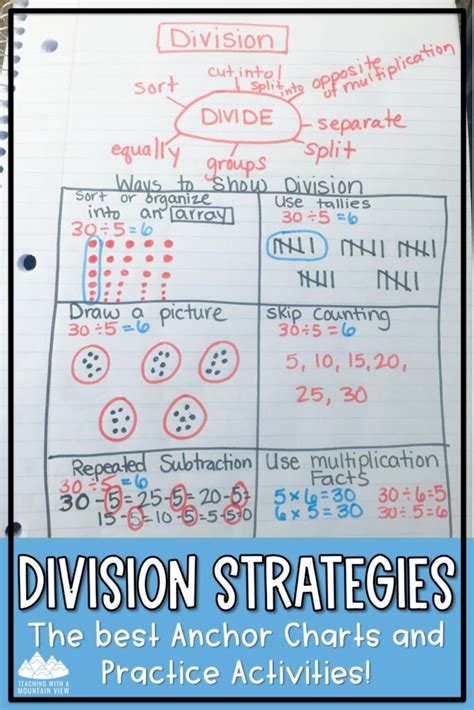 Division
cut into/
split into
opposite
of multiplication
sort
DIVIDE
separate
split
equally
groups
Ways to Show Division
Sort or organize
into an array
30÷5=6
Use tallies
30÷5=6
Draw a picture
30÷5=6
skip counting
30÷5=6
5, 10, 15, 20,
25, 30
Repeated Subtraction
30÷5=6
30-5=25-5=20-5=
15-5=10-5=5-5=0
Use multiplication
Facts
5×6=30 30÷6=5
6×5=30 30÷5=6
DIVISION STRATEGIES
The best Anchor Charts and
Practice Activities!
TEACHING WITH A
MOUNTAIN VIEW